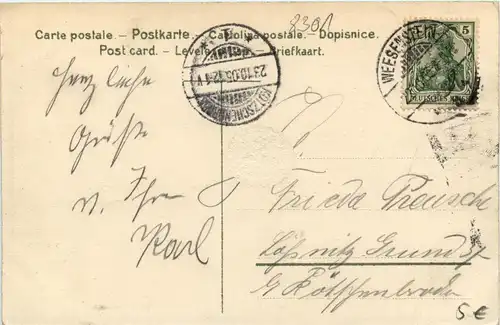 8301
Carte postale. – Postkarte. – Cartolina postale. – Dopisnice.
Post card. – Levelező-lap. – Briefkaart.
5
DEUTSCHES REICH
WEESENSTEIN
KÖTZSCHENBRODA
23.10.05.12-1V
Herzliche
Grüße
v. Ihrem
Karl
Frieda
Lößnitz Grund
Kötzschenbroda
5€